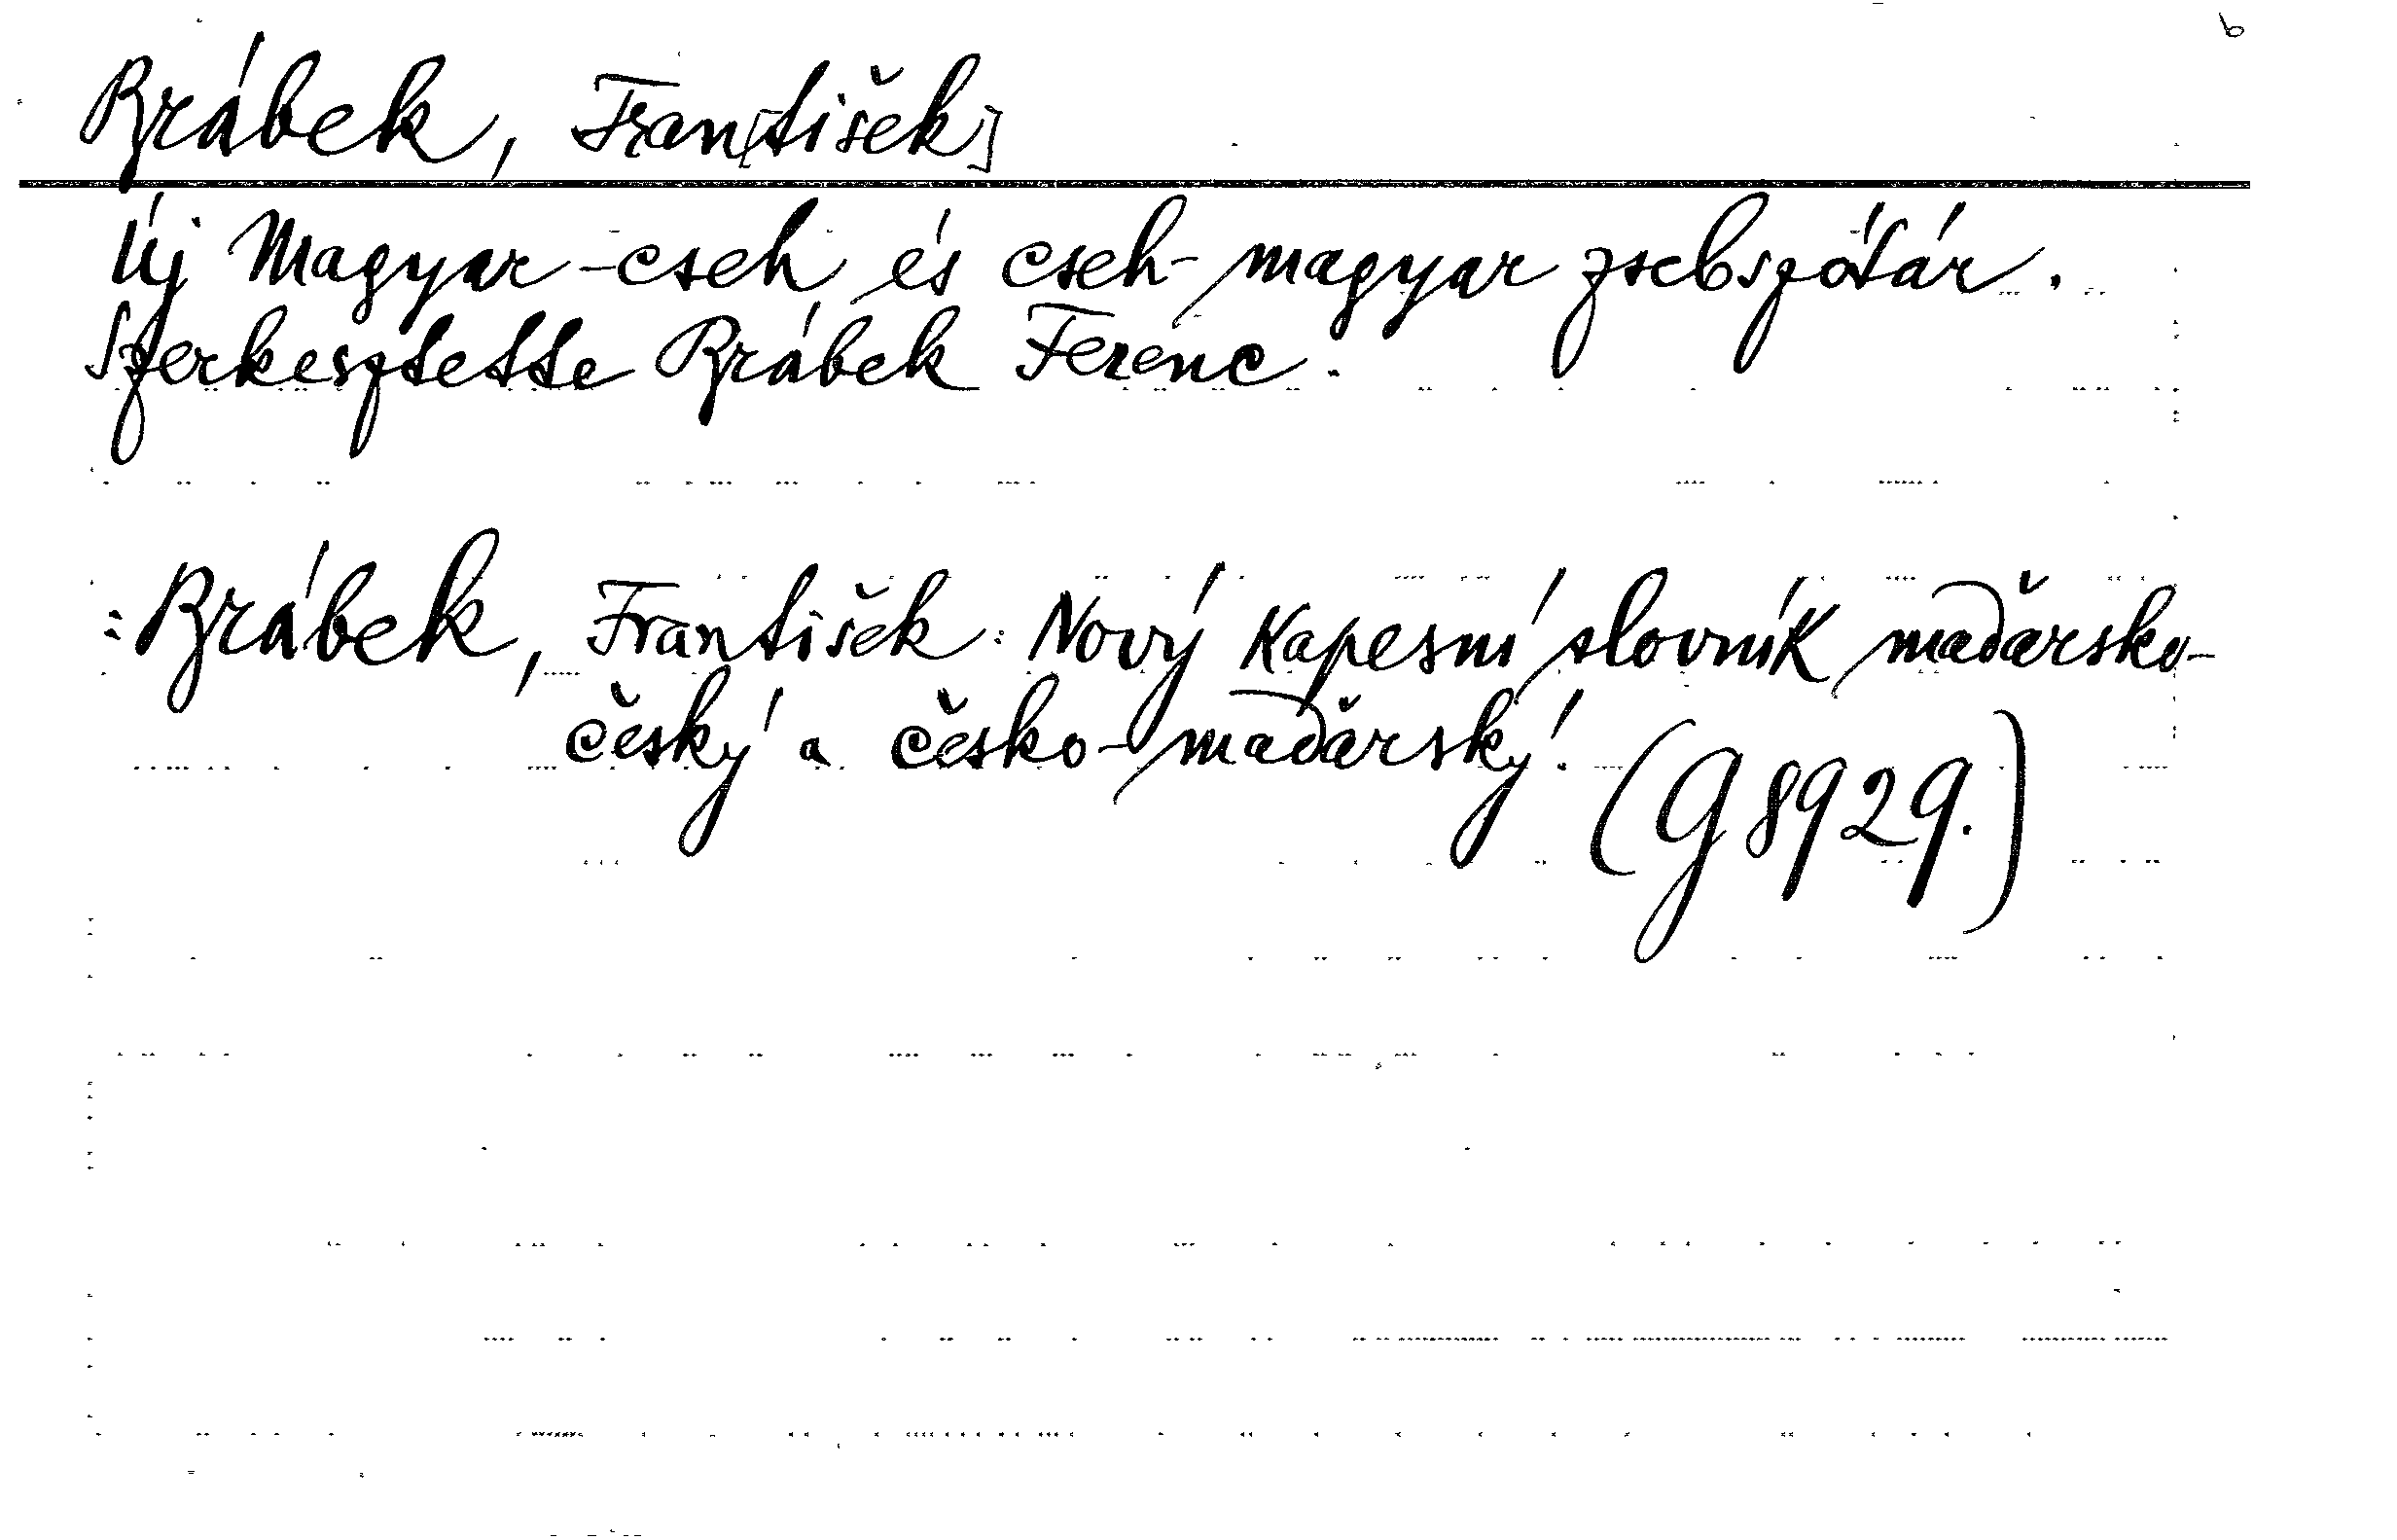 b
Brábek, Fran[tišek]
Új Magyar-cseh és cseh-magyar zsebszótár.
Szerkesztette Brábek Ferenc.
=Brábek, František: Nový Kapesní slovník maďarsko-
český a česko-maďarský!
(G 8929.)